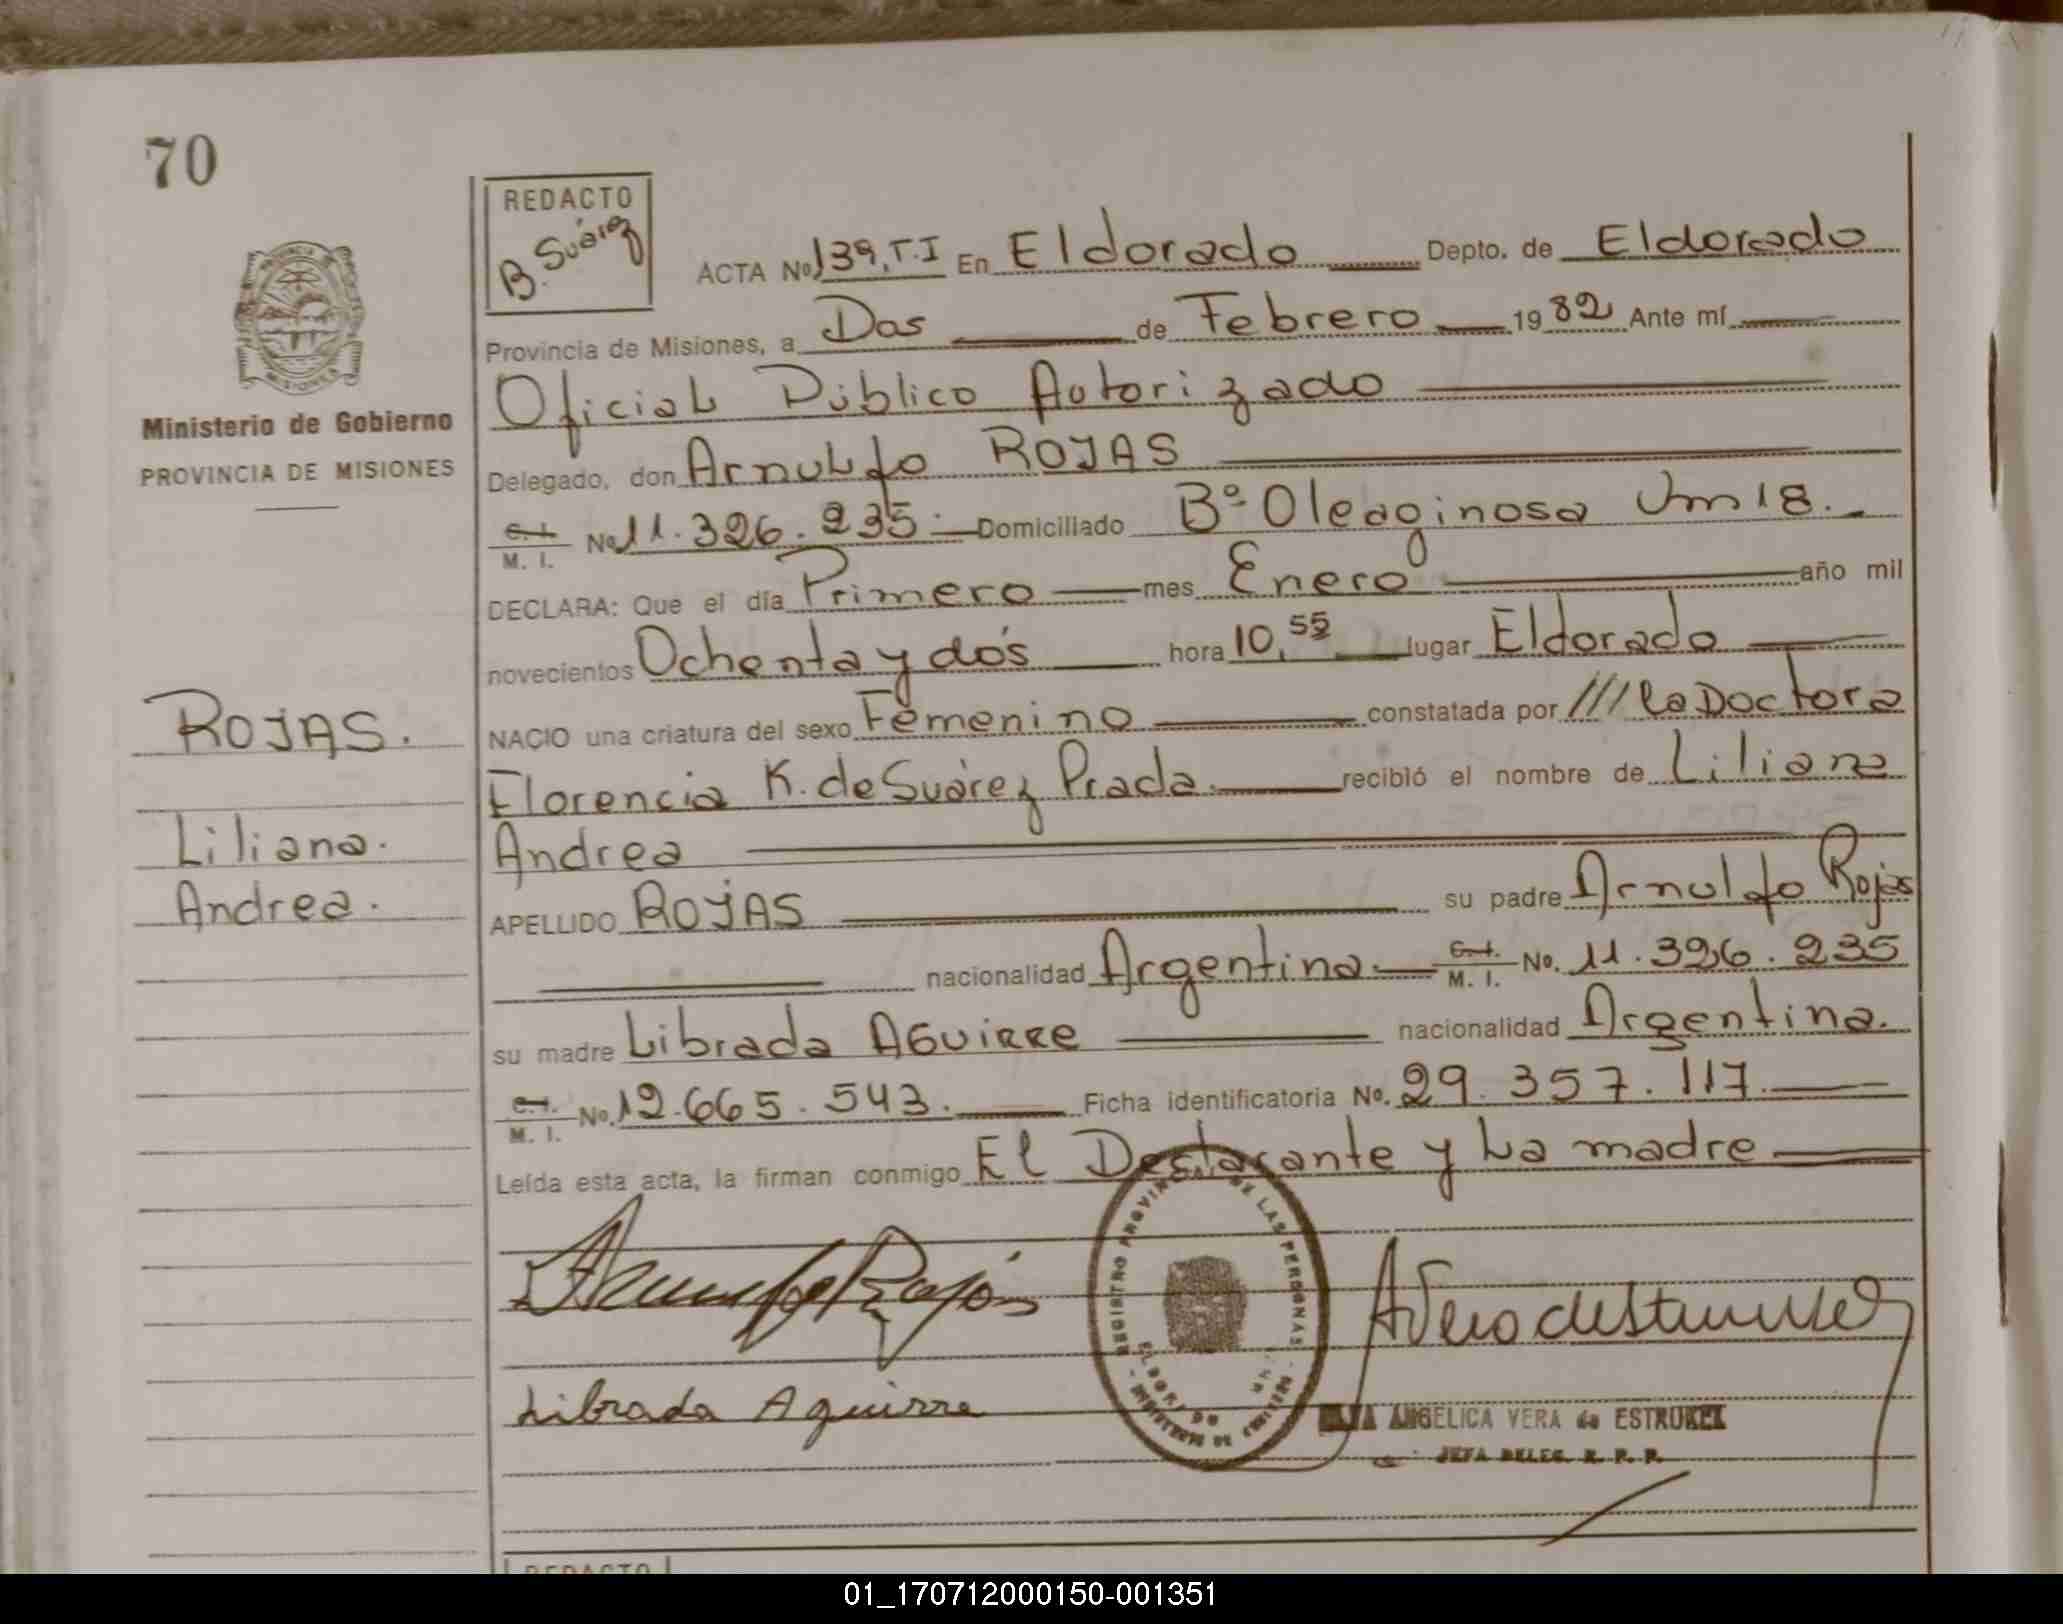 70
REDACTO
B. Suárez
ACTA No 139, T.I En Eldorado Depto. de Eldorado
Provincia de Misiones, a Dos de Febrero 1982 Ante mí
Oficial Público Autorizado
Ministerio de Gobierno
PROVINCIA DE MISIONES
Delegado, don Arnulfo ROJAS
C.I. M. I. No 11.326.235 Domiciliado Bº Oleaginosa Km 18.
DECLARA: Que el día Primero mes Enero año mil
novecientos Ochenta y dós hora 10,55 lugar Eldorado
NACIO una criatura del sexo Femenino constatada por /// la Doctora
ROJAS.
Florencia K. de Suárez Prada. recibió el nombre de Liliana
Liliana.
Andrea
Andrea.
APELLIDO ROJAS su padre Arnulfo Rojas
nacionalidad Argentina. C.I. M. I. No. 11.326.235
su madre Librada AGUIRRE nacionalidad Argentina.
C.I. M. I. No. 12.665.543. Ficha identificatoria No. 29.357.117.
Leída esta acta, la firman conmigo El Declarante y La madre
Arnulfo Rojas
REGISTRO PROVINCIAL DE LAS PERSONAS
ELDORADO
Librada Aguirre
ANGELICA VERA de ESTRUKEL
JEFA DELEG. R. P. P.
REDACTO
01_170712000150-001351